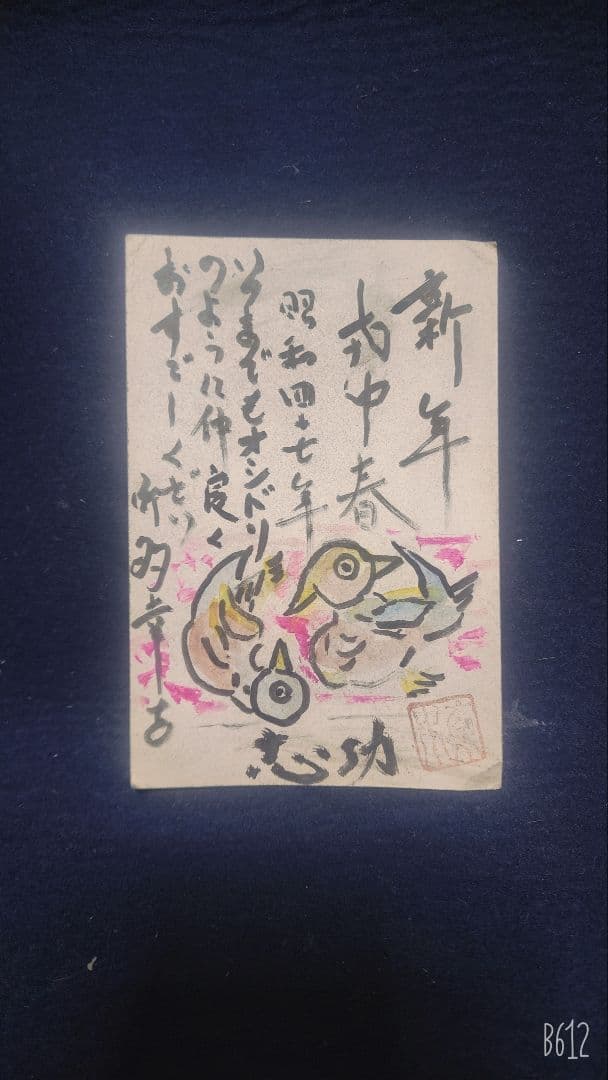 新年
戌申春
昭和四十七年
いつまでもオシドリ
のように仲良く
おすごしください
功
志
B612